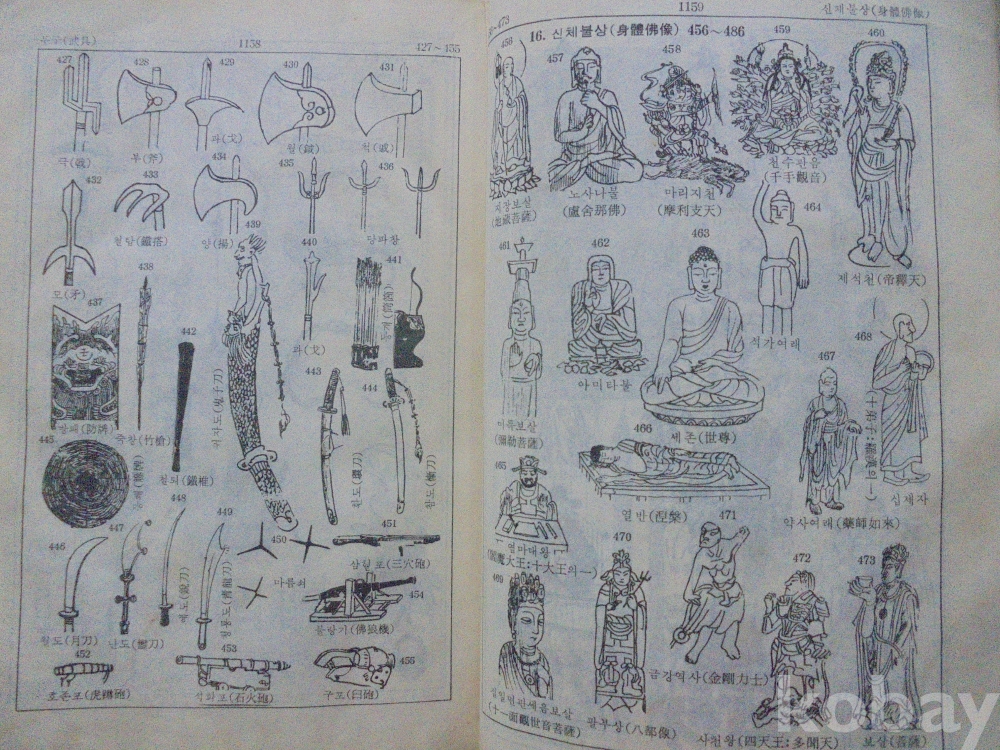 1158
427~455
427
428
429
430
431
극(戟)
부(斧)
과(戈)
월(鉞)
척(戚)
432
433
434
435
436
철탑(鐵搭)
양(揚)
당파창
모(矛)
437
438
439
440
441
과(戈)
442
443
444
방패(防牌)
죽창(竹槍)
귀자도(鬼子刀)
철퇴(鐵椎)
445
446
447
448
449
450
451
마름쇠
삼혈포(三穴砲)
월도(月刀)
예도(銳刀)
청룡도(靑龍刀)
불랑기(佛狼機)
454
452
453
455
호준포(虎蹲砲)
석화포(石火砲)
구포(臼砲)
1159
신체불상(身體佛像)
16. 신체불상(身體佛像) 456~486
456
457
458
459
460
지장보살
(地蔵菩薩)
노사나불
(盧舍那佛)
마리지천
(摩利支天)
천수관음
(千手觀音)
제석천(帝釋天)
461
462
463
464
미륵보살
(彌勒菩薩)
아미타불
세존(世尊)
석가여래
465
466
467
468
염마대왕
(閻魔大王:十大王의一)
열반(涅槃)
약사여래(藥師如來)
십제자
469
470
471
472
473
십일면관세음보살
(十一面觀世音菩薩)
팔부상(八部像)
금강역사(金剛力士)
사천왕(四天王:多聞天)
보살(菩薩)
kobay